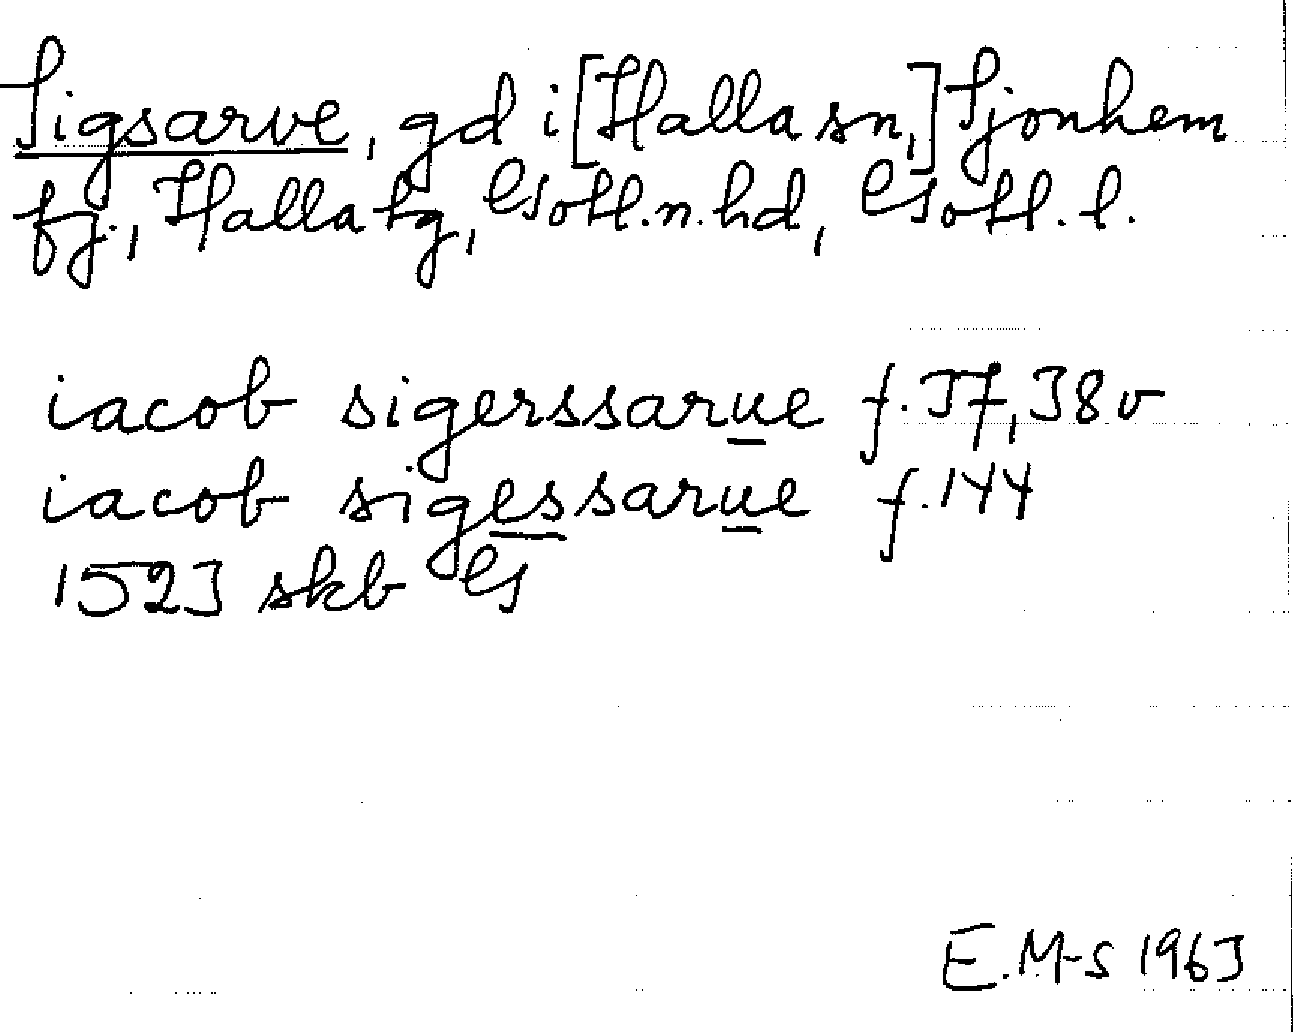 Sigsarve, gd i [Halla sn,] Sjonhem
fj., Halla tg, Gotl.n.hd, Gotl.l.
iacob sigerssarue f.37, 38v
iacob sigessarue f.144
1523 skb G
E.M-S 1963